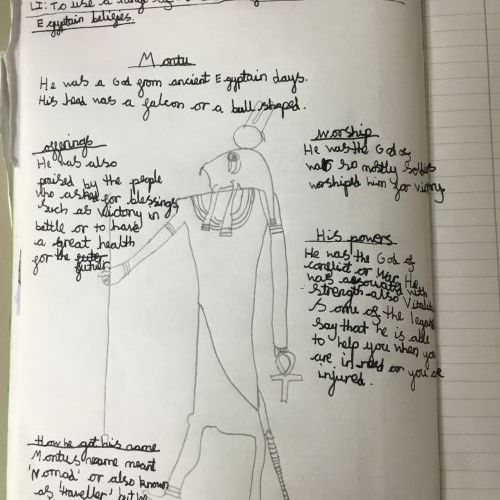 LI: To use a range
Egyptain beliefs.
Montu
He was a God from ancient Egyptain days.
His head was a falcon or a bull shaped.
offerings
He was also
praised by the people
who asked for blessings
such as victory in
battle or to have
a great health
for the
futer.
worship
He was the God of
war so mostly soldiers
worshiped him for victory
His powers
He was the God of
conflict or War. He
was associated with
strength also Vitality
Some of the legends
say that he is able
to help you when you
are in need or you're
injured.
How he got his name
Montus name meant
'Nomad' or also known
as 'traveller' but he